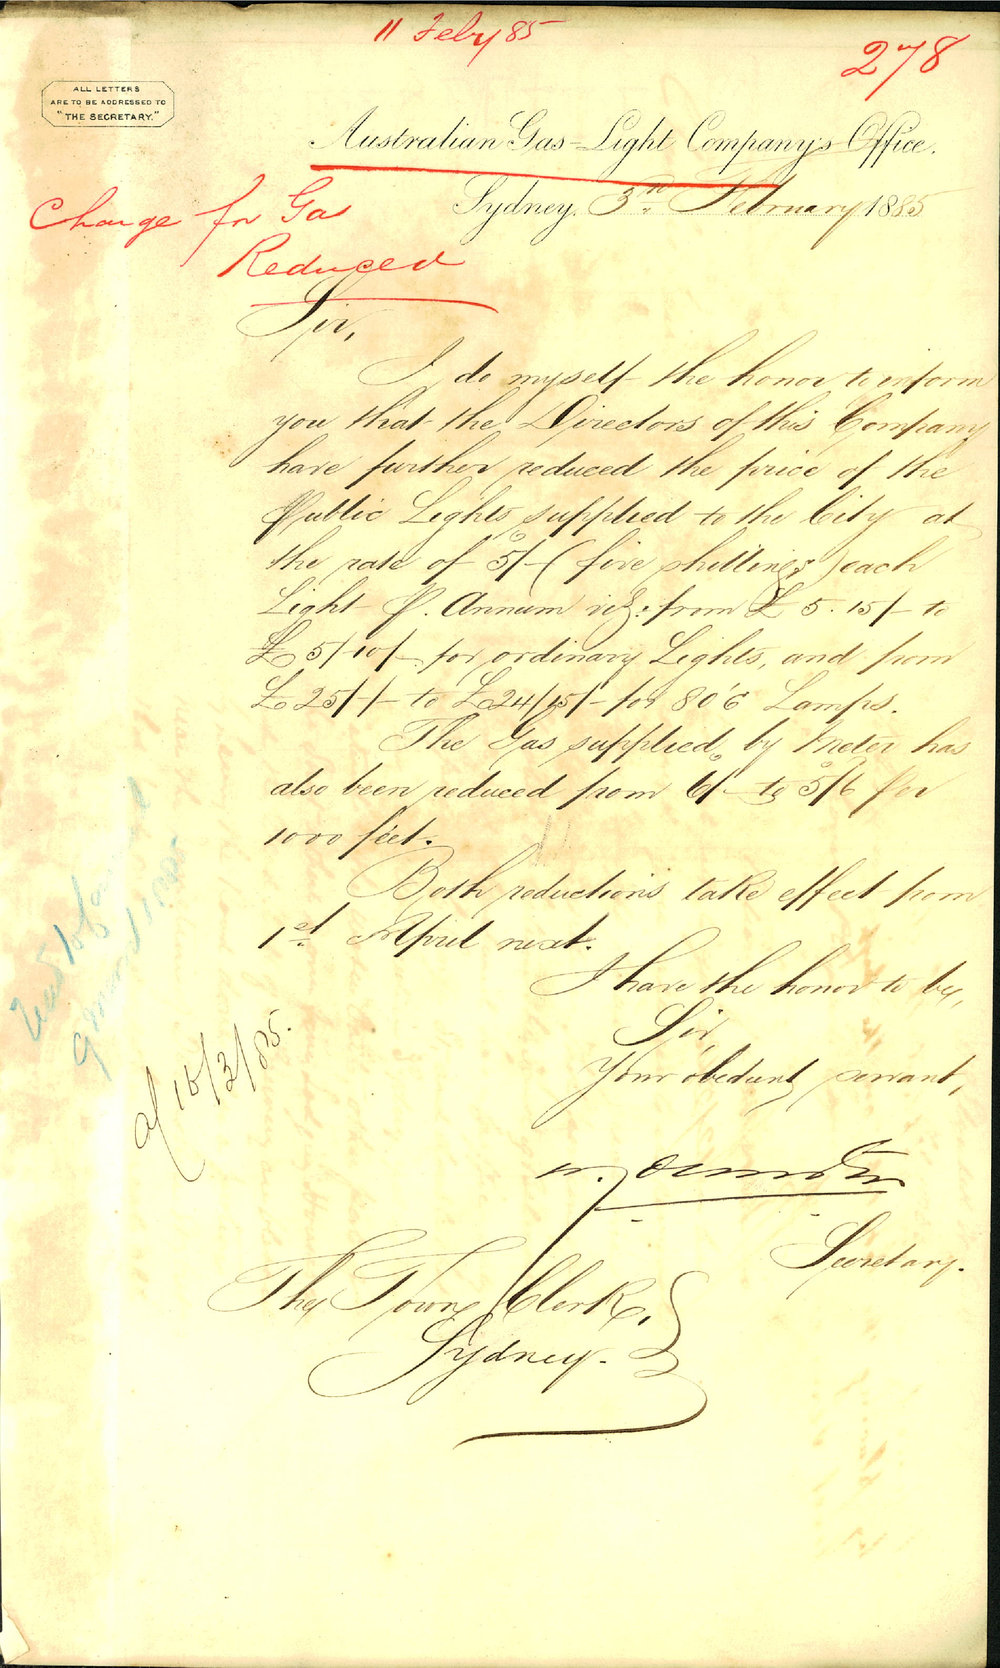 11 Feby 85
278
ALL LETTERS
ARE TO BE ADDRESSED TO
"THE SECRETARY."
Australian Gas-Light Company's Office.
Sydney, 3rd February 1885
Charge for Gas
Reduced
Sir,
I do myself the honor to inform
you that the Directors of this Company
have further reduced the price of the
Public Lights supplied to the City at
the rate of 5/- (five shillings) each
Light P. Annum viz: from £5.15/- to
£5/10/- for ordinary Lights, and from
£25/-/- to £24/15/- for 80's Lamps.
The Gas supplied by Meter has
also been reduced from 6/- to 5/6 per
1000 feet.
Both reductions take effect from
1st April next.
I have the honor to be,
Sir,
Your obedient servant,
Secretary.
The Town Clerk,
Sydney.